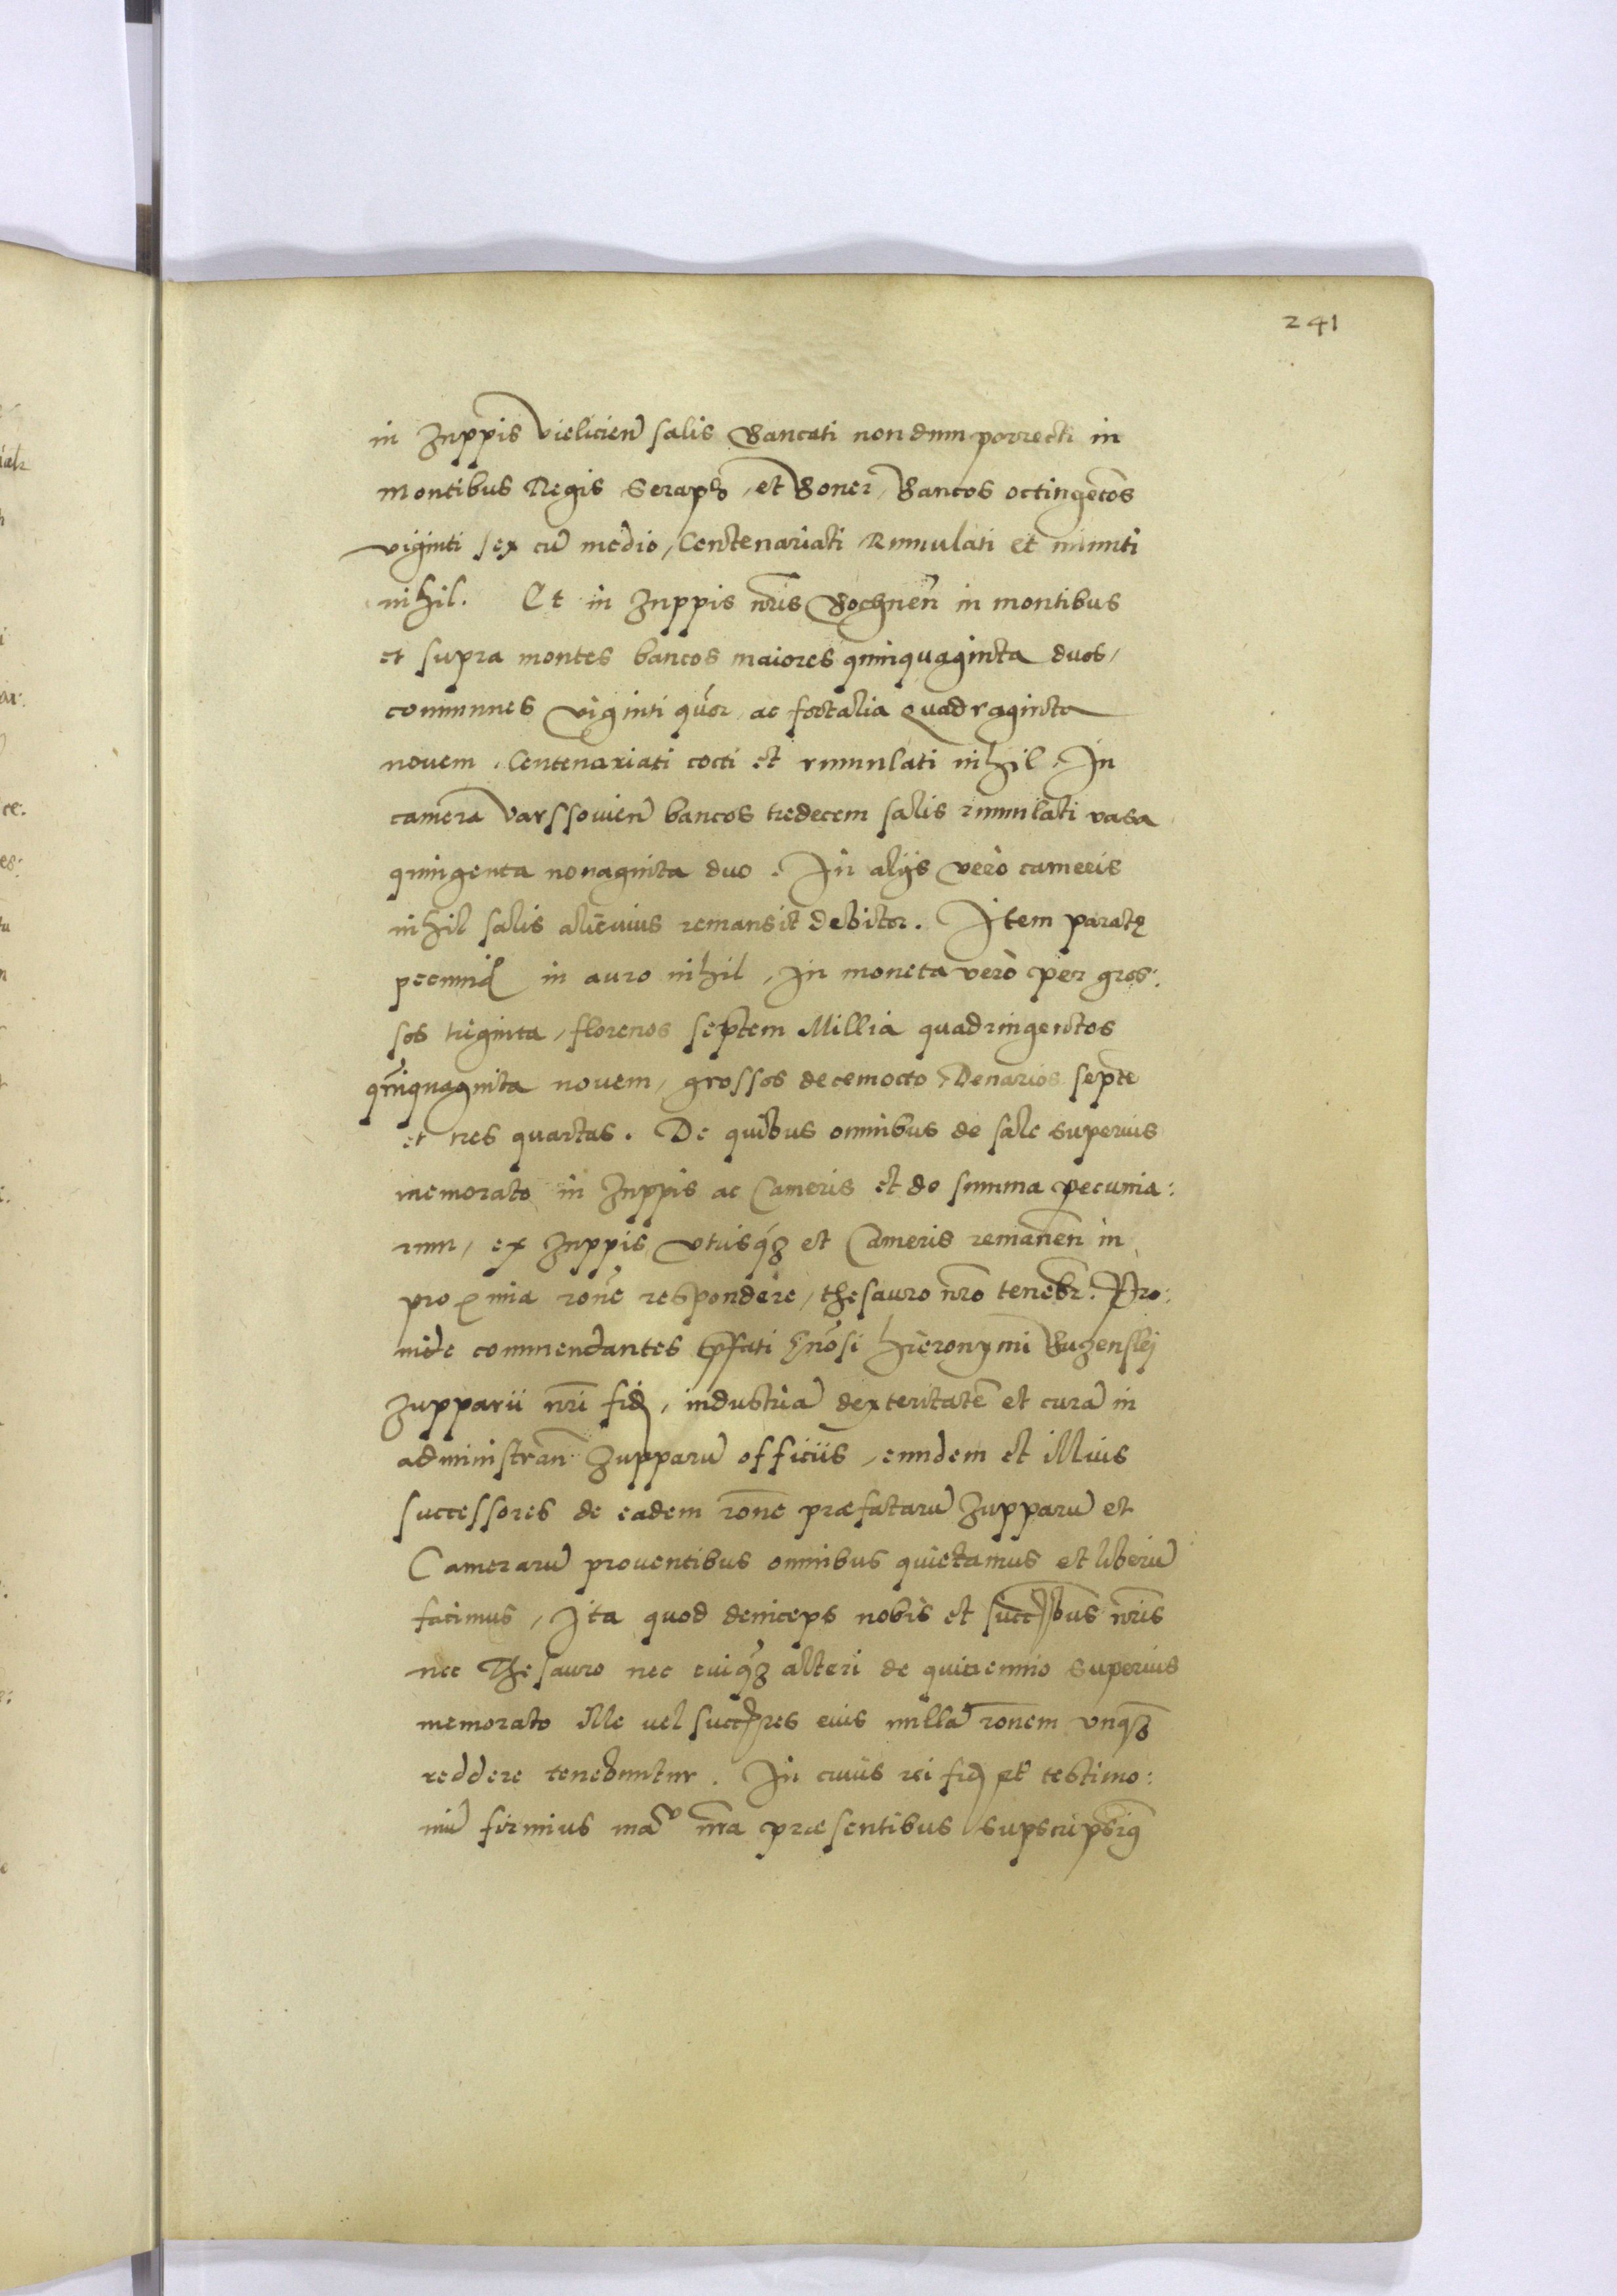 241
in Zuppis Vieliciēn salis Bancati nondum porrecti in
montibus Regis Seraph, et Boner, Bancos octingētos
viginti sex cū medio, Centenariati Rumulati et minuti
nihil. Et in Zuppis nr̄is Bochnēn in montibus
et supra montes bancos maiores quinquaginta duos,
communes viginti qūor, ac fortalia Quadraginta
novem. Centenariati cocti et rumulati nihil. In
camera Varssoviēn bancos tredecem salis rumulati vasa
quingenta nonaginta duo. In alijs verò cameris
nihil salis alicuius remansit debitor. Item paratę
pecunię in auro nihil, in moneta verò per gros:
sos triginta, florenos septem Millia quadringentos
quinquaginta novem, grossos decemocto, Denarios septē
et tres quartas. De quibus omnibus de sale superius
memorato in Zuppis ac Cameris et de summa pecunia:
rum, ex Zuppis utrisq́z et Cameris remanēn in
proxima rōne respondere, thesauro nr̄o teneb̄r. Pro:
inde commendantes pfati Gn̄osi Hieronymi Buzenskj
Zupparii nr̄i fid, industriā dexteritatē et curā in
administrān Zupparū officiis, eundem et illius
successores de eadem rōne præfatarū Zupparū et
Camerarū proventibus omnibus quietamus et liberū
facimus, Ita quod deinceps nobis et succ̄sbus nr̄is
nec Thesauro nec cuiq́z alteri de quinennio superius
memorato ille vel succ̄res eius nullā rōnem unq́z
reddere tenebuntur. In cuius rei fid et testimo:
niū firmius manū nr̄a præsentibus supscripsimg